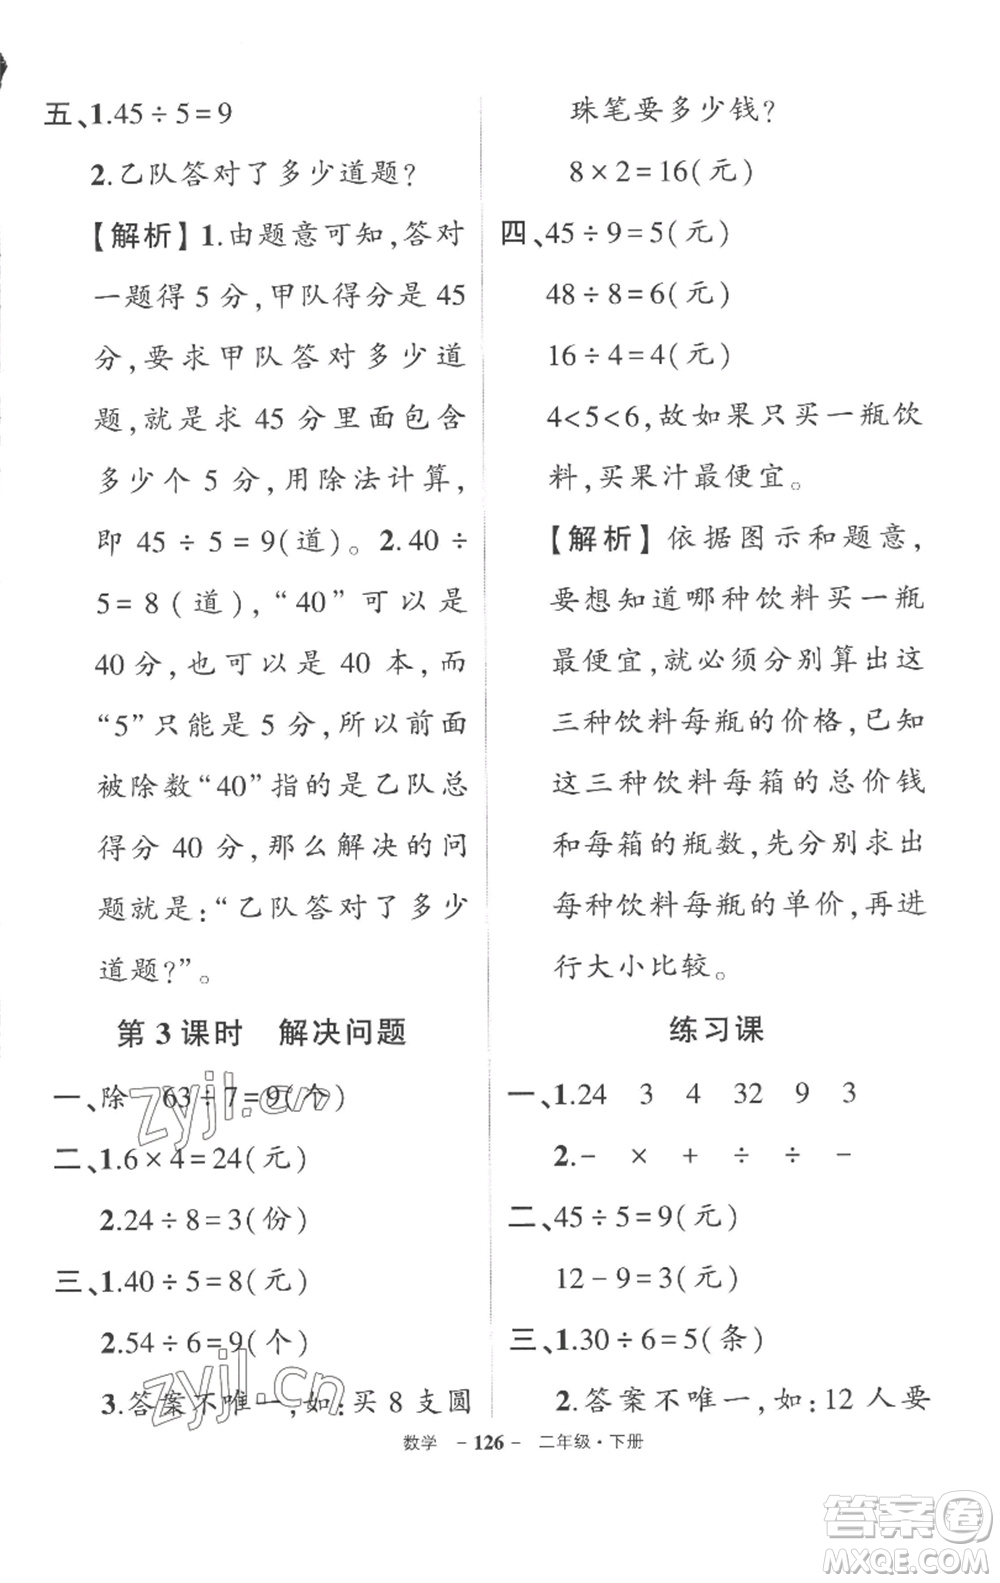 五、1.45÷5=9
2.乙队答对了多少道题?
【解析】1.由题意可知,答对
一题得5分,甲队得分是45
分,要求甲队答对多少道
题,就是求45分里面包含
多少个5分,用除法计算,
即45÷5=9(道)。2.40÷
5=8(道),“40”可以是
40分,也可以是40本,而
“5”只能是5分,所以前面
被除数“40”指的是乙队总
得分40分,那么解决的问
题就是:“乙队答对了多少
道题?”。
第3课时 解决问题
一、除 63÷7=9(个)
二、1.6×4=24(元)
2.24÷8=3(份)
三、1.40÷5=8(元)
2.54÷6=9(个)
3.答案不唯一,如:买8支圆
珠笔要多少钱?
8×2=16(元)
四、45÷9=5(元)
48÷8=6(元)
16÷4=4(元)
4<5<6,故如果只买一瓶饮
料,买果汁最便宜。
【解析】依据图示和题意,
要想知道哪种饮料买一瓶
最便宜,就必须分别算出这
三种饮料每瓶的价格,已知
这三种饮料每箱的总价钱
和每箱的瓶数,先分别求出
每种饮料每瓶的单价,再进
行大小比较。
练习课
一、1.24 3 4 32 9 3
2.- × + ÷ ÷ -
二、45÷5=9(元)
12-9=3(元)
三、1.30÷6=5(条)
2.答案不唯一,如:12人要
数学 -126- 二年级·下册
zyjl.cn
zyjl.cn
答案卷
MXQE.COM